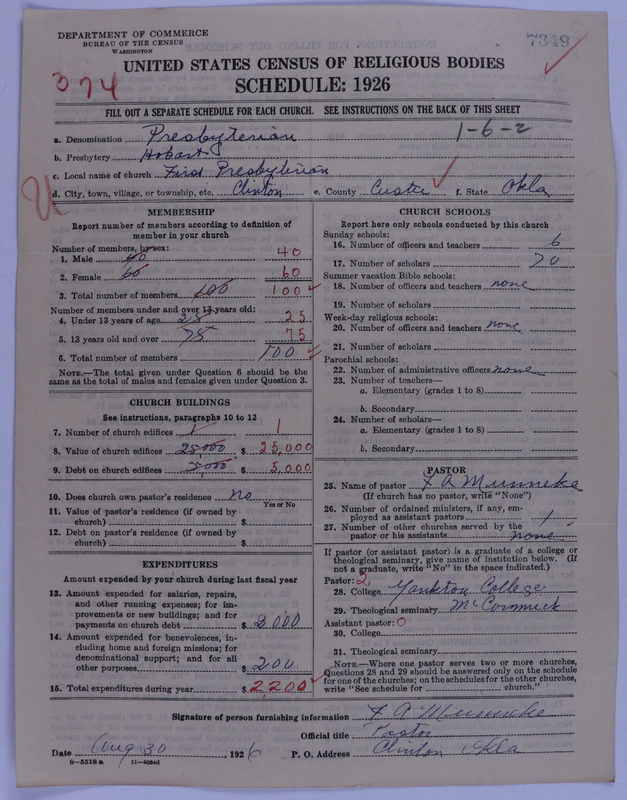 DEPARTMENT OF COMMERCE
BUREAU OF THE CENSUS
WASHINGTON
7349
374
UNITED STATES CENSUS OF RELIGIOUS BODIES
SCHEDULE: 1926
FILL OUT A SEPARATE SCHEDULE FOR EACH CHURCH. SEE INSTRUCTIONS ON THE BACK OF THIS SHEET
1-6-2
a. Denomination Presbyterian
b. Presbytery Hobart
c. Local name of church First Presbyterian
d. City, town, village, or township, etc. Clinton e. County Custer f. State Okla
MEMBERSHIP
Report number of members according to definition of
member in your church
Number of members, by sex:
1. Male 40 40
2. Female 60 60
3. Total number of members 100 100
Number of members under and over 13 years old:
4. Under 13 years of age 25 25
5. 13 years old and over 75 75
6. Total number of members 100
NOTE.—The total given under Question 6 should be the
same as the total of males and females given under Question 3.
CHURCH BUILDINGS
See instructions, paragraphs 10 to 12
7. Number of church edifices 1 1
8. Value of church edifices 25,000 $ 25,000
9. Debt on church edifices 5,000 $ 5,000
10. Does church own pastor's residence no
Yes or No
11. Value of pastor's residence (if owned by
church) $
12. Debt on pastor's residence (if owned by
church) $
EXPENDITURES
Amount expended by your church during last fiscal year
13. Amount expended for salaries, repairs,
and other running expenses; for im-
provements or new buildings; and for
payments on church debt $ 2000
14. Amount expended for benevolences, in-
cluding home and foreign missions; for
denominational support; and for all
other purposes $ 200
15. Total expenditures during year $ 2200
CHURCH SCHOOLS
Report here only schools conducted by this church
Sunday schools:
16. Number of officers and teachers 6
17. Number of scholars 70
Summer vacation Bible schools:
18. Number of officers and teachers none
19. Number of scholars
Week-day religious schools:
20. Number of officers and teachers none
21. Number of scholars
Parochial schools:
22. Number of administrative officers none
23. Number of teachers—
a. Elementary (grades 1 to 8)
b. Secondary
24. Number of scholars—
a. Elementary (grades 1 to 8)
b. Secondary
PASTOR
25. Name of pastor F A Munneke
(If church has no pastor, write "None")
26. Number of ordained ministers, if any, em-
ployed as assistant pastors 1
27. Number of other churches served by the
pastor or his assistants none
If pastor (or assistant pastor) is a graduate of a college or
theological seminary, give name of institution below. (If
not a graduate, write "No" in the space indicated.)
Pastor: 2
28. College Yankton College
29. Theological seminary McCormick
Assistant pastor: 0
30. College
31. Theological seminary
NOTE.—Where one pastor serves two or more churches,
Questions 28 and 29 should be answered only on the schedule
for one of the churches; on the schedules for the other churches,
write "See schedule for church."
Signature of person furnishing information F A Munneke
Official title Pastor
Date Aug 30, 1926 P. O. Address Clinton Okla
8—5518 a